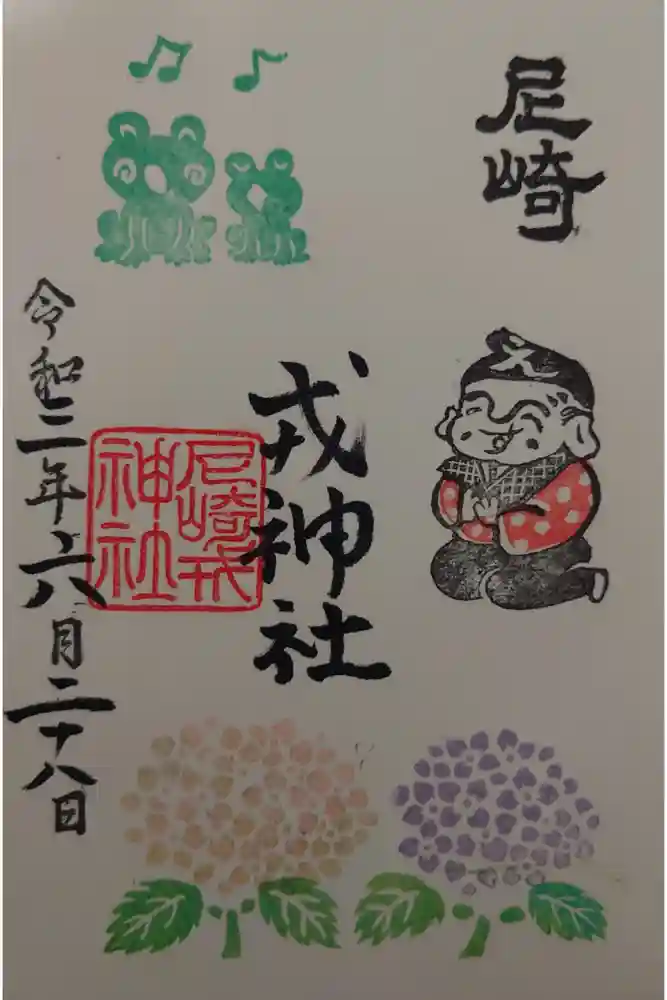 尼崎
戎神社
令和三年六月二十八日
尼崎戎
神社
え